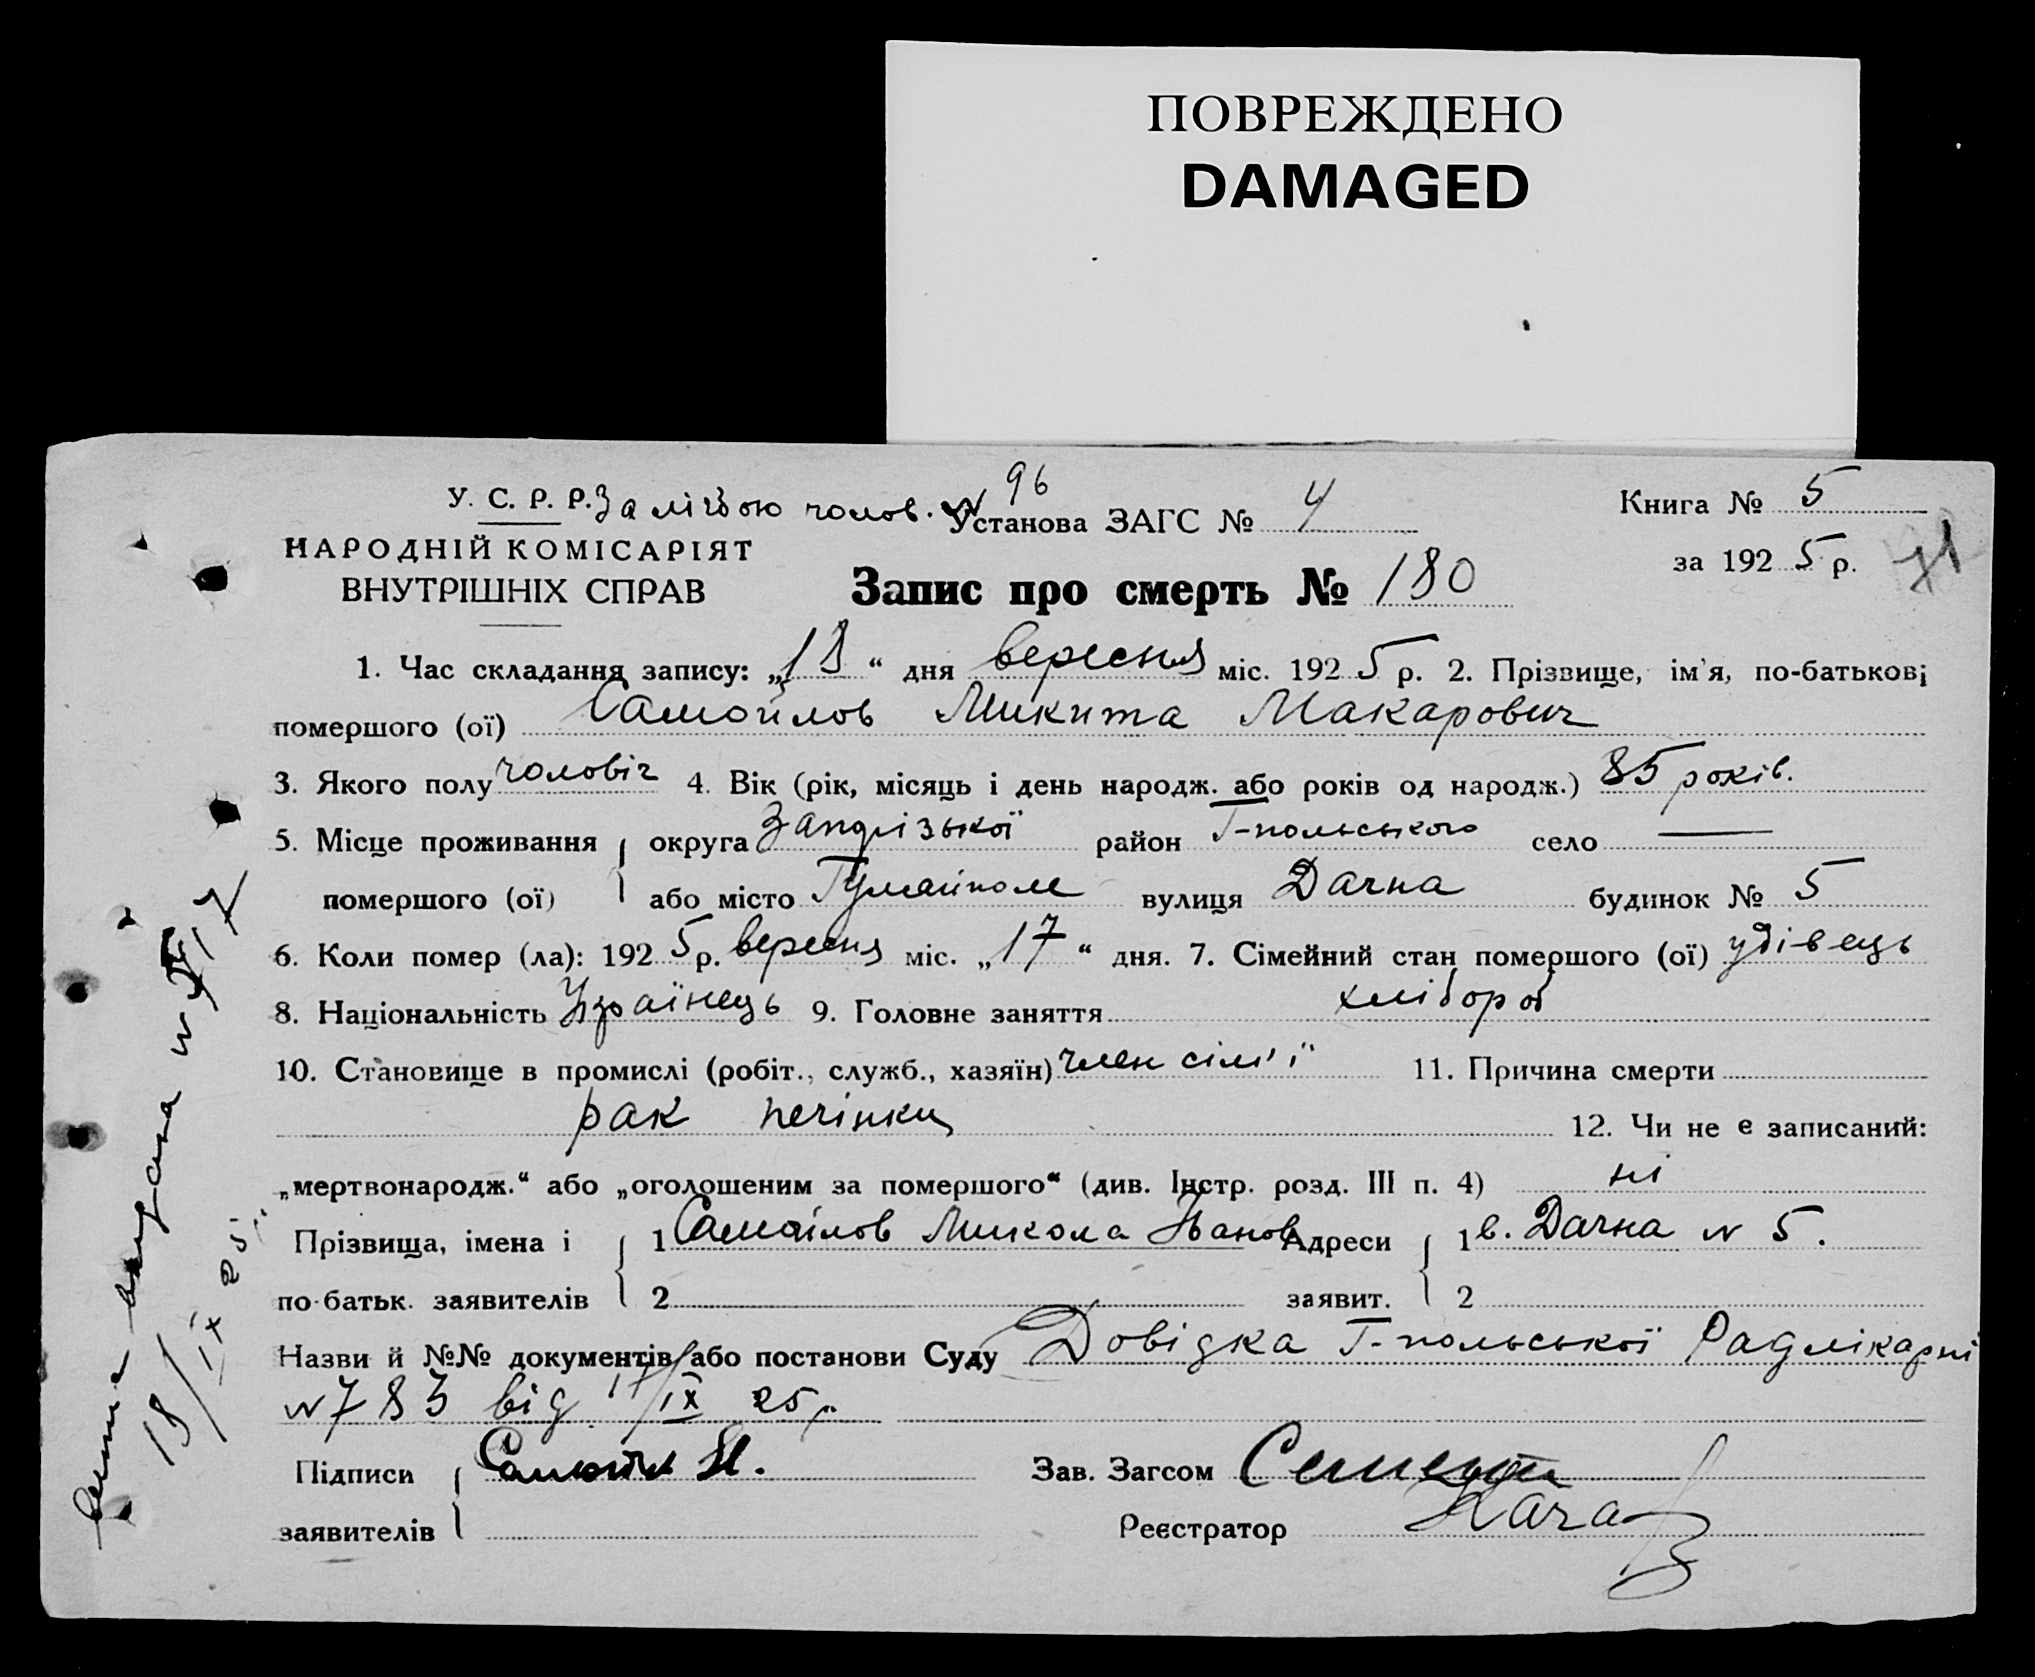 ПОВРЕЖДЕНО
DAMAGED
У. С. Р. Р. За лічбою чолов. № 96
Установа ЗАГС № 4
Книга № 5
НАРОДНІЙ КОМІСАРІЯТ
ВНУТРІШНІХ СПРАВ
за 1925 р.
71
Запис про смерть № 180
1. Час складання запису: „18“ дня вересня міс. 1925 р. 2. Прізвище, ім'я, по-батькові
помершого (ої) Самойлов Микита Макарович
3. Якого полу чоловіч 4. Вік (рік, місяць і день народж. або років од народж.) 85 років.
5. Місце проживання округа Запорізької район Г-польського село —
помершого (ої) або місто Гуляйполе вулиця Дачна будинок № 5
6. Коли помер (ла): 1925 р. вересня міс. „17“ дня. 7. Сімейний стан помершого (ої) удівець
8. Національність Українець 9. Головне заняття хлібороб
10. Становище в промислі (робіт., служб., хазяїн) член сім'ї 11. Причина смерти
рак печінки 12. Чи не є записаний:
„мертвонародж.“ або „оголошеним за помершого“ (див. Інстр. розд. III п. 4) ні
Прізвища, імена і 1 Самойлов Микола Іванов Адреси 1 в. Дачна № 5.
по-батьк. заявителів 2 заявит. 2
Назви й №№ документів або постанови Суду Довідка Г-польської Радлікарні
№ 783 від 17/IX 25 р.
Підписи Самойлов Зав. Загсом
заявителів Реєстратор
18/IX 25